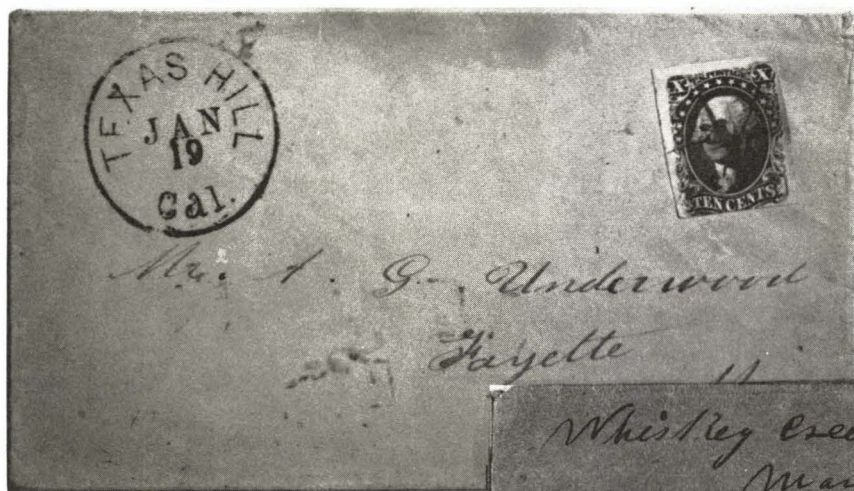 TEXAS HILL
JAN
19
Cal.
X U.S. POSTAGE X
TEN CENTS
Mr. A. G. Underwood
Fayette
Whiskey Cree
Mar